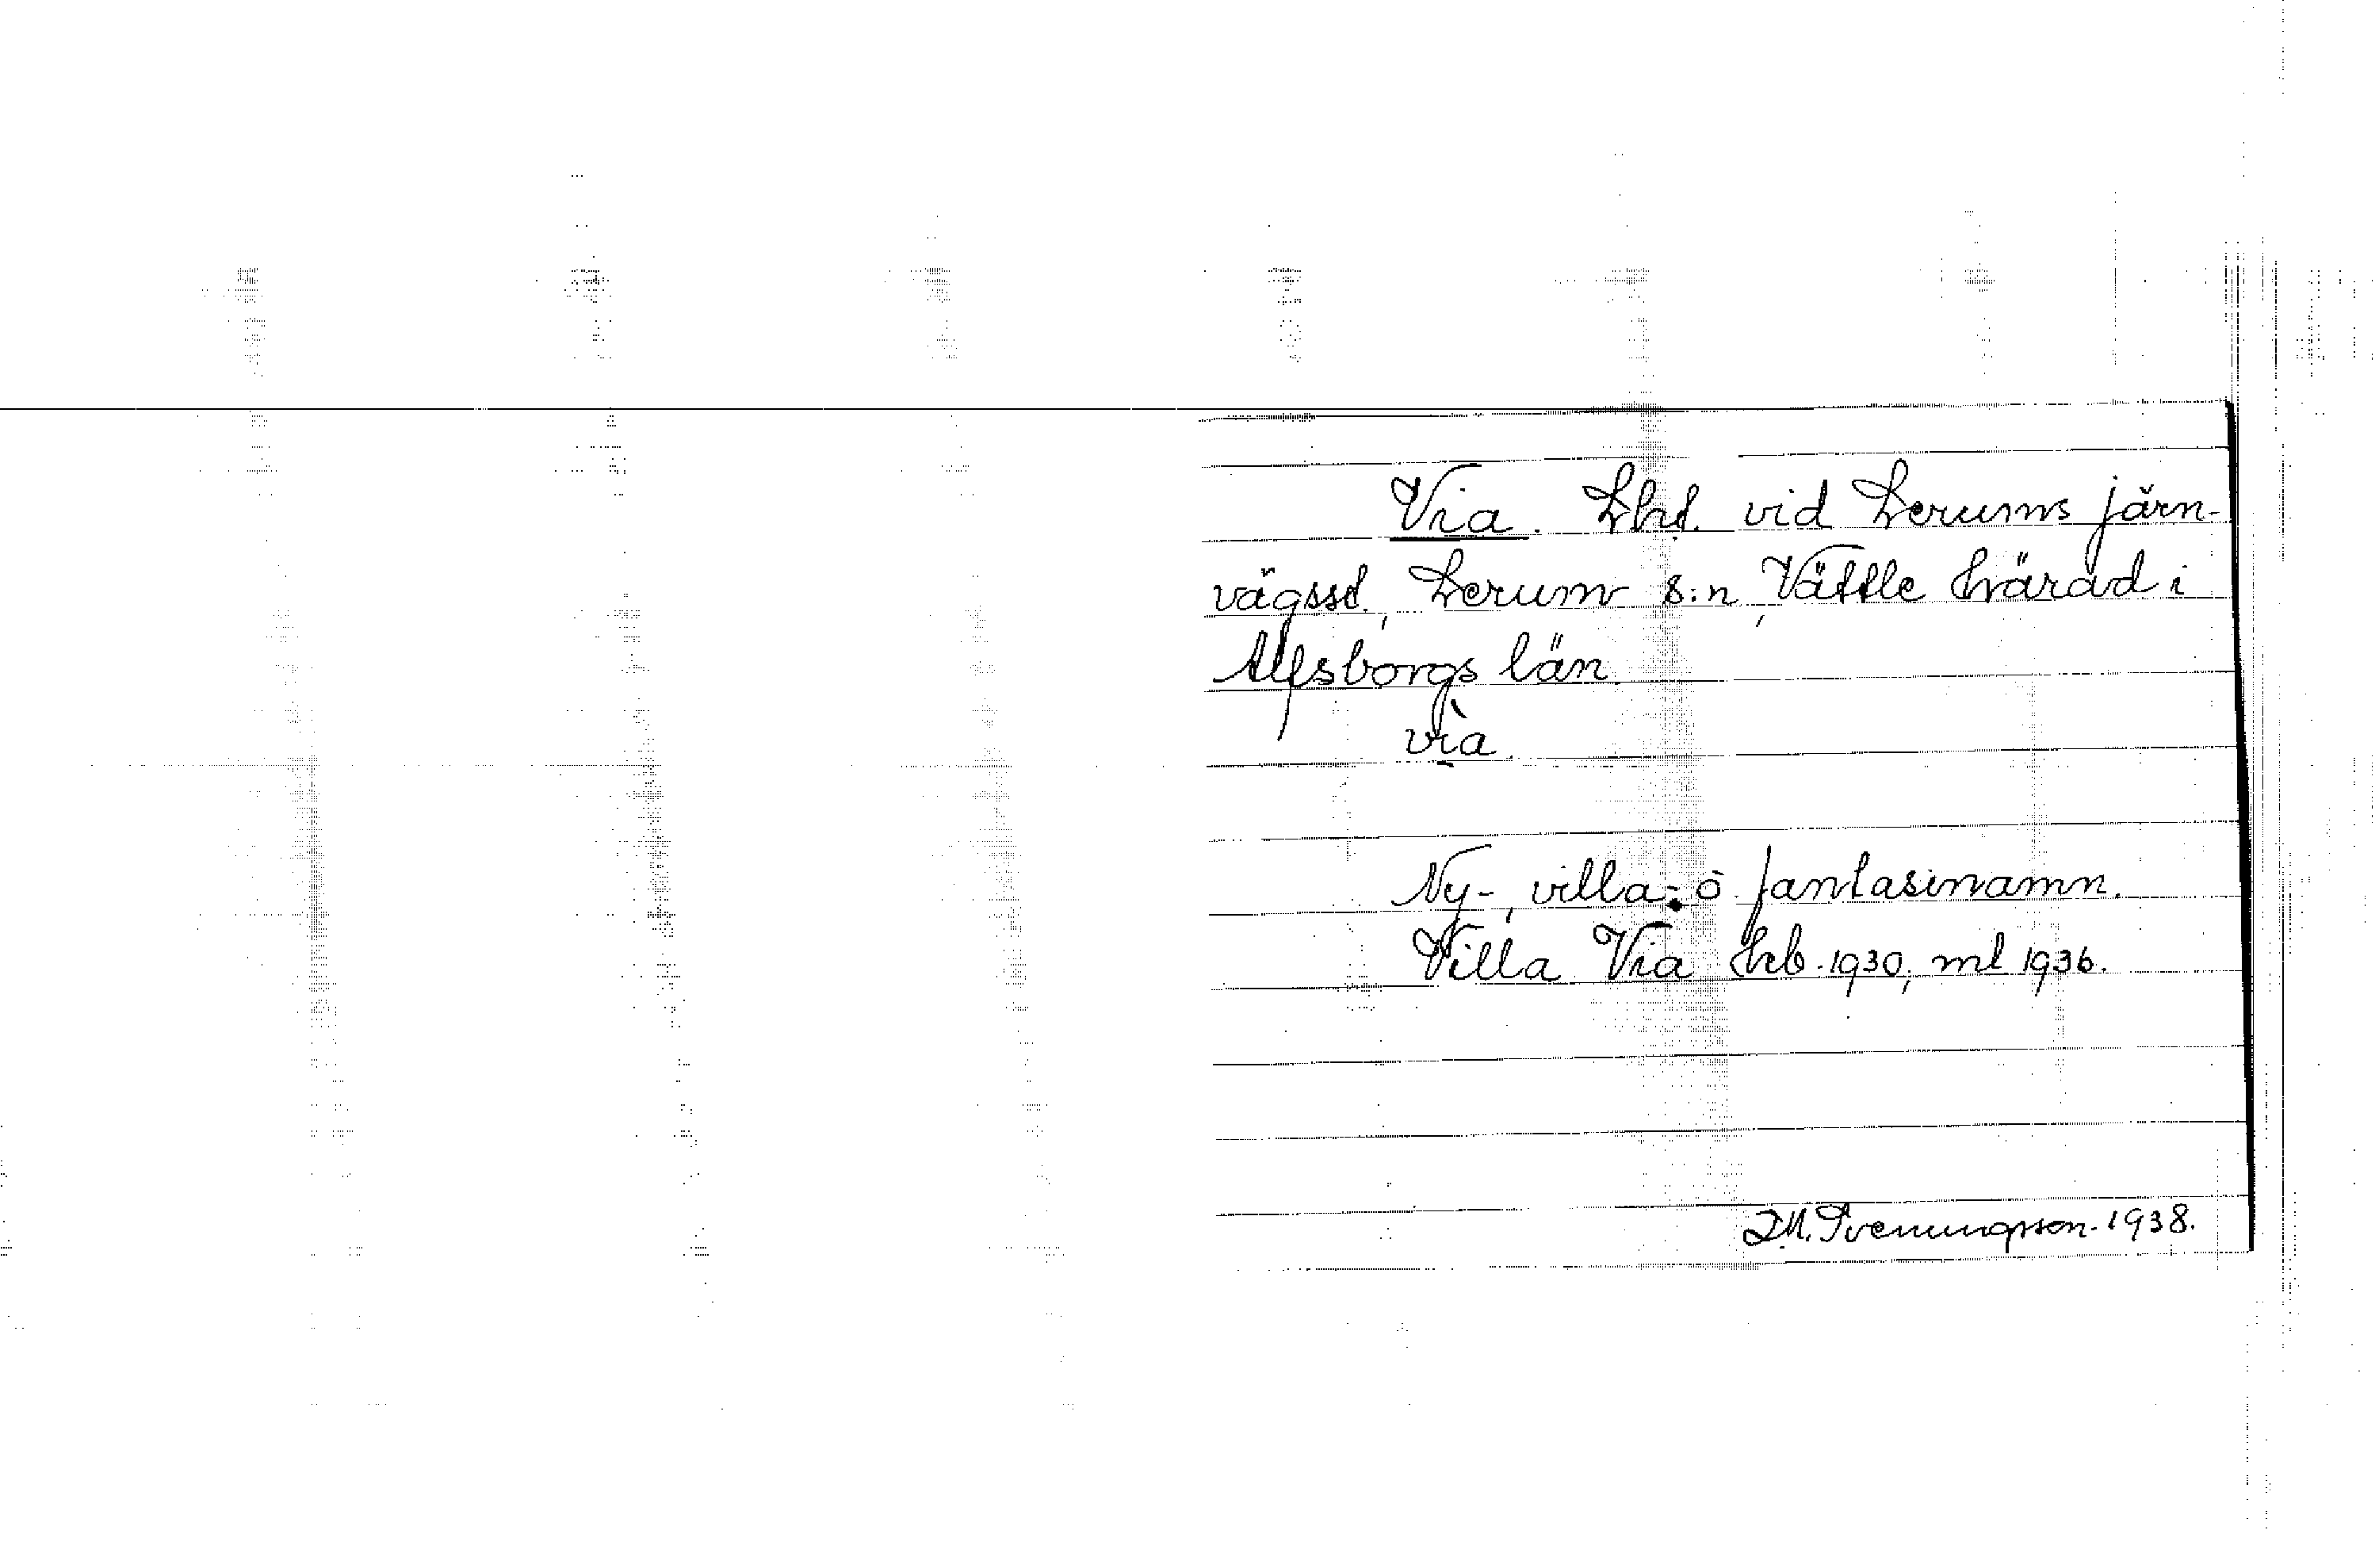 Via. Lht. vid Lerums järn-
vägsst., Lerum s:n, Vättle härad i
Älfsborgs län.
vìa.
Ny-, villa- o. fantasinamn.
Villa Via Hrb. 1930, ml 1936.
D.M. Svenungsson. 1938.